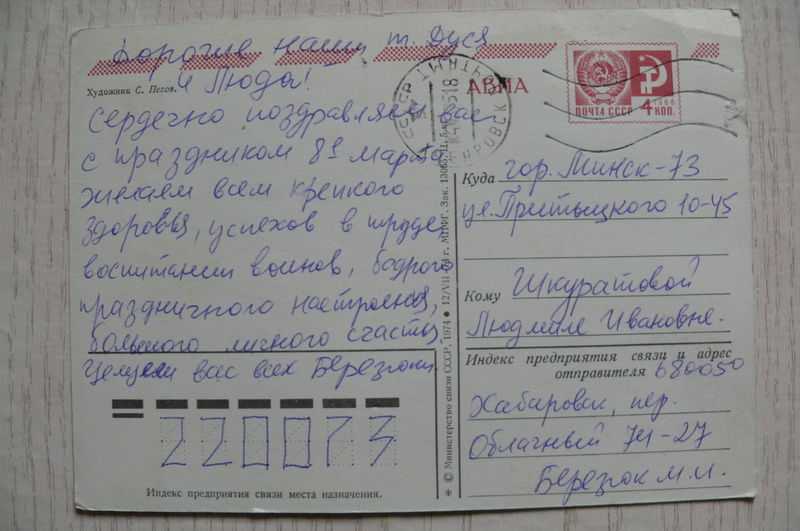 Дорогие наши т. Дуся
и Люда!
Художник С. Пегов.
Сердечно поздравляем вас
с праздником 8го марта
желаем всем крепкого
здоровья, успехов в труде
воспитании воинов, бодрого
праздничного настроения,
большого личного счастья.
Целуем вас всех Березюки.
220073
Индекс предприятия связи места назначения.
* © Министерство связи СССР, 1974 * 12/VII-74 г. МПФГ. Зак.
АВИА
ПОЧТА СССР
4 КОП.
1966
СССР
ПОЧТАМТ
18
Куда гор. Минск-73
ул. Притыцкого 10-45
Кому Шкуратовой
Людмиле Ивановне.
Индекс предприятия связи и адрес
отправителя 680050
Хабаровск, пер.
Облачный 74-27
Березюк М.И.